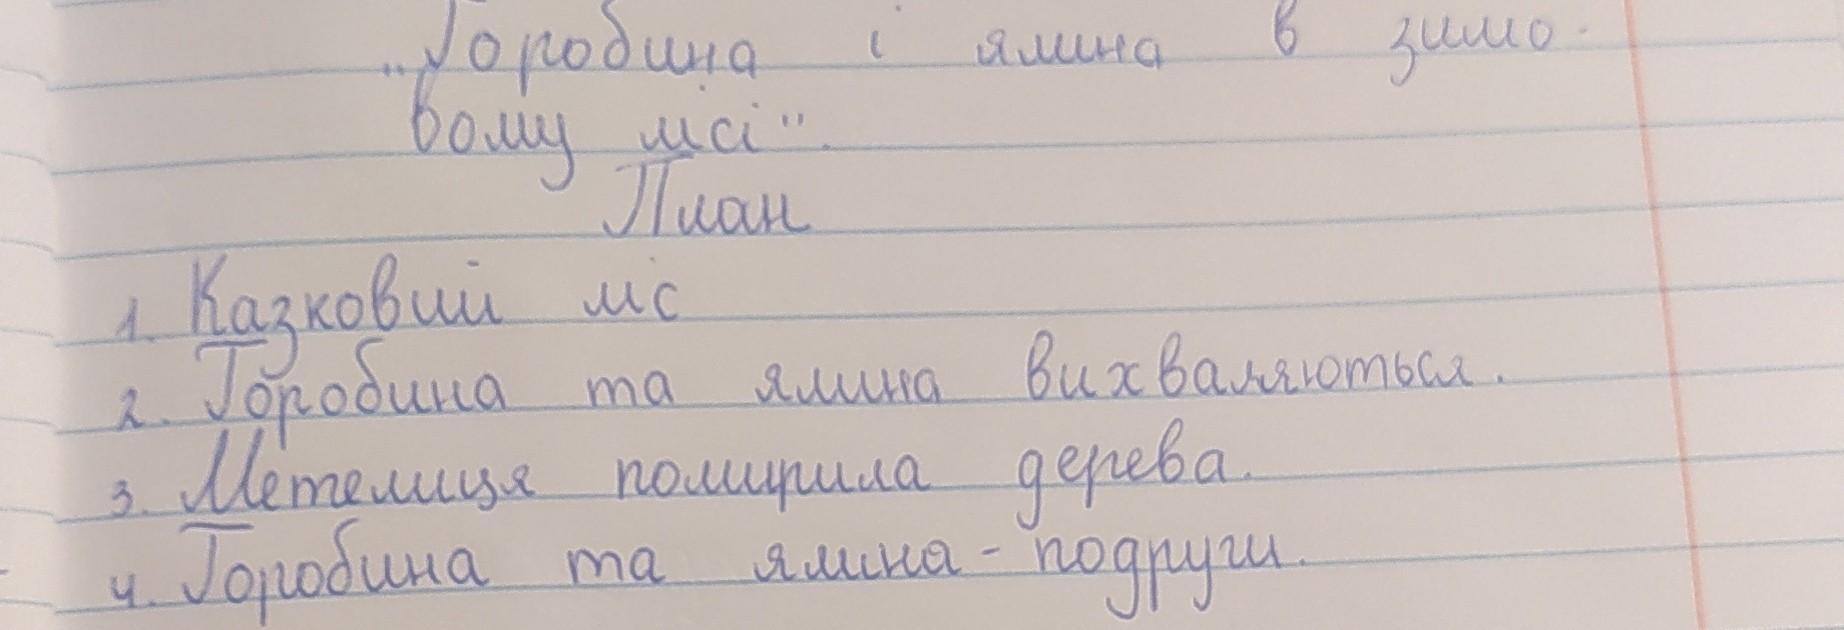 „Горобина і ялина в зимо-
вому лісі".
План
1. Казковий ліс
2. Горобина та ялина вихваляються.
3. Метелиця помирила дерева.
4. Горобина та ялина - подруги.